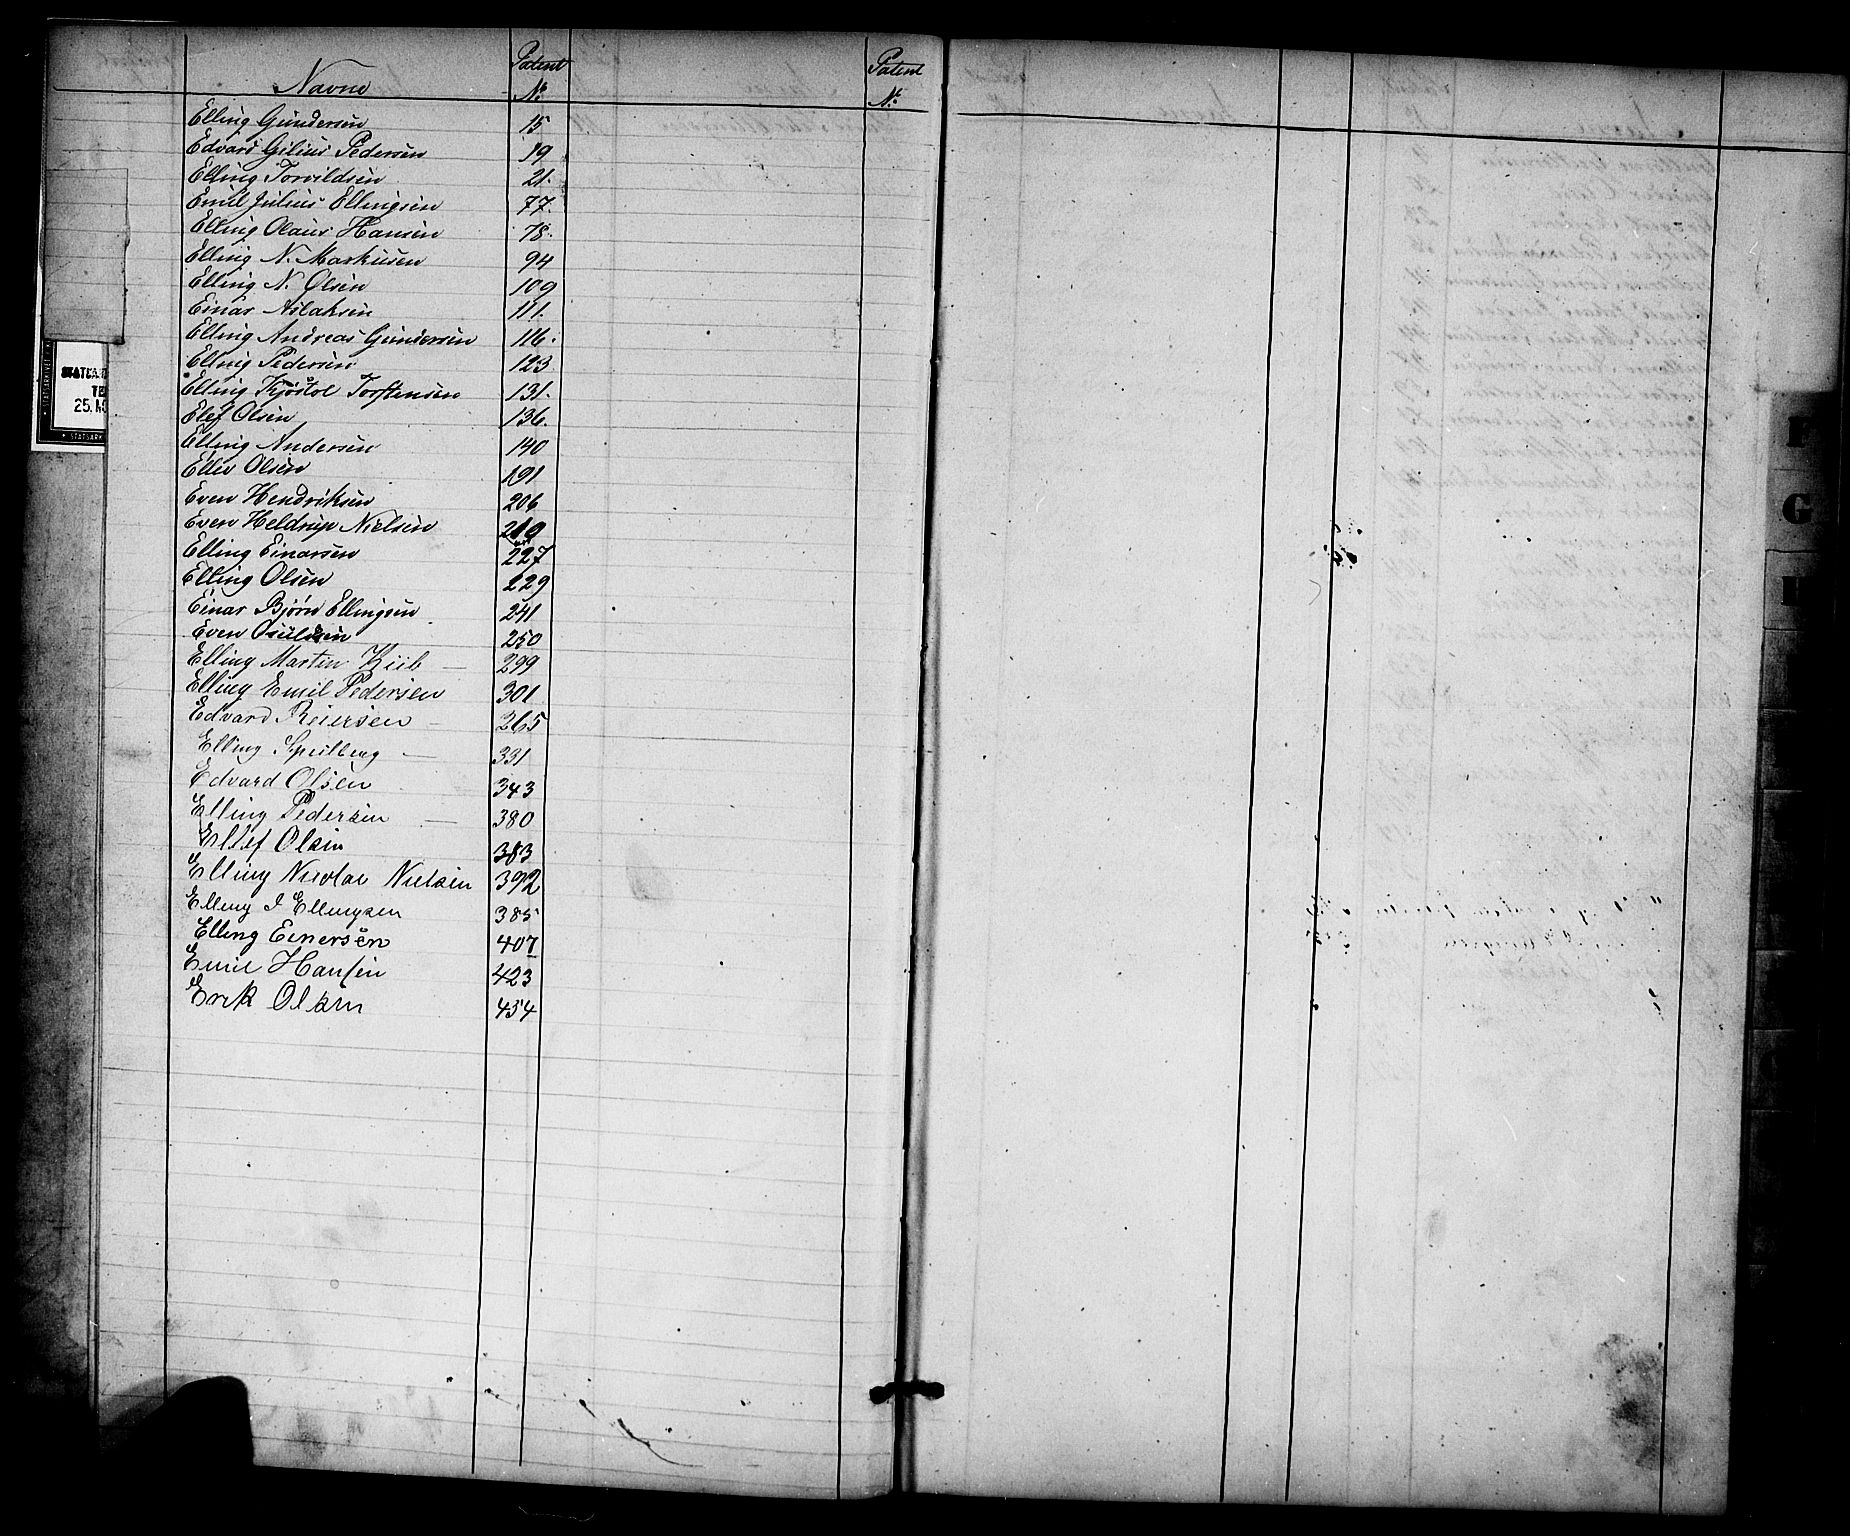 Navne Patent Nr. Patent Nr.
Elling Gundersen 15
Edvard Gilius Pedersen 19
Elling Torvildsen 21.
Emil Julius Ellingsen 77.
Elling Olaus Hansen 78.
Elling N. Markusen 94
Elling N. Olsen 109
Einar Aslaksen 111.
Elling Andreas Gundersen 116.
Elling Pedersen 123
Elling Kjøstol Torstensen 131.
Elef Olsen 136.
Elling Andersen 140
Ellev Olsen 191
Even Hendriksen 206
Even Heldrup Nielsen 219
Elling Einarsen 227
Elling Olsen 229
Einar Bjørn Ellingsen 241
Even Osuldsen 250
Elling Martin Kiil — 299
Elling Emil Pedersen 301
Edvard Reiersen — 265
Elling — 331
Edvard Olsen 343
Elling Pedersen — 380
Ellef Olsen 383
Elling Nicolai Nielsen 392
Elling J Ellingsen 385
Elling Einersen 407
Emil Hansen 423
Erik Olsen 454
STATSARKIVET
25.
F
G
H